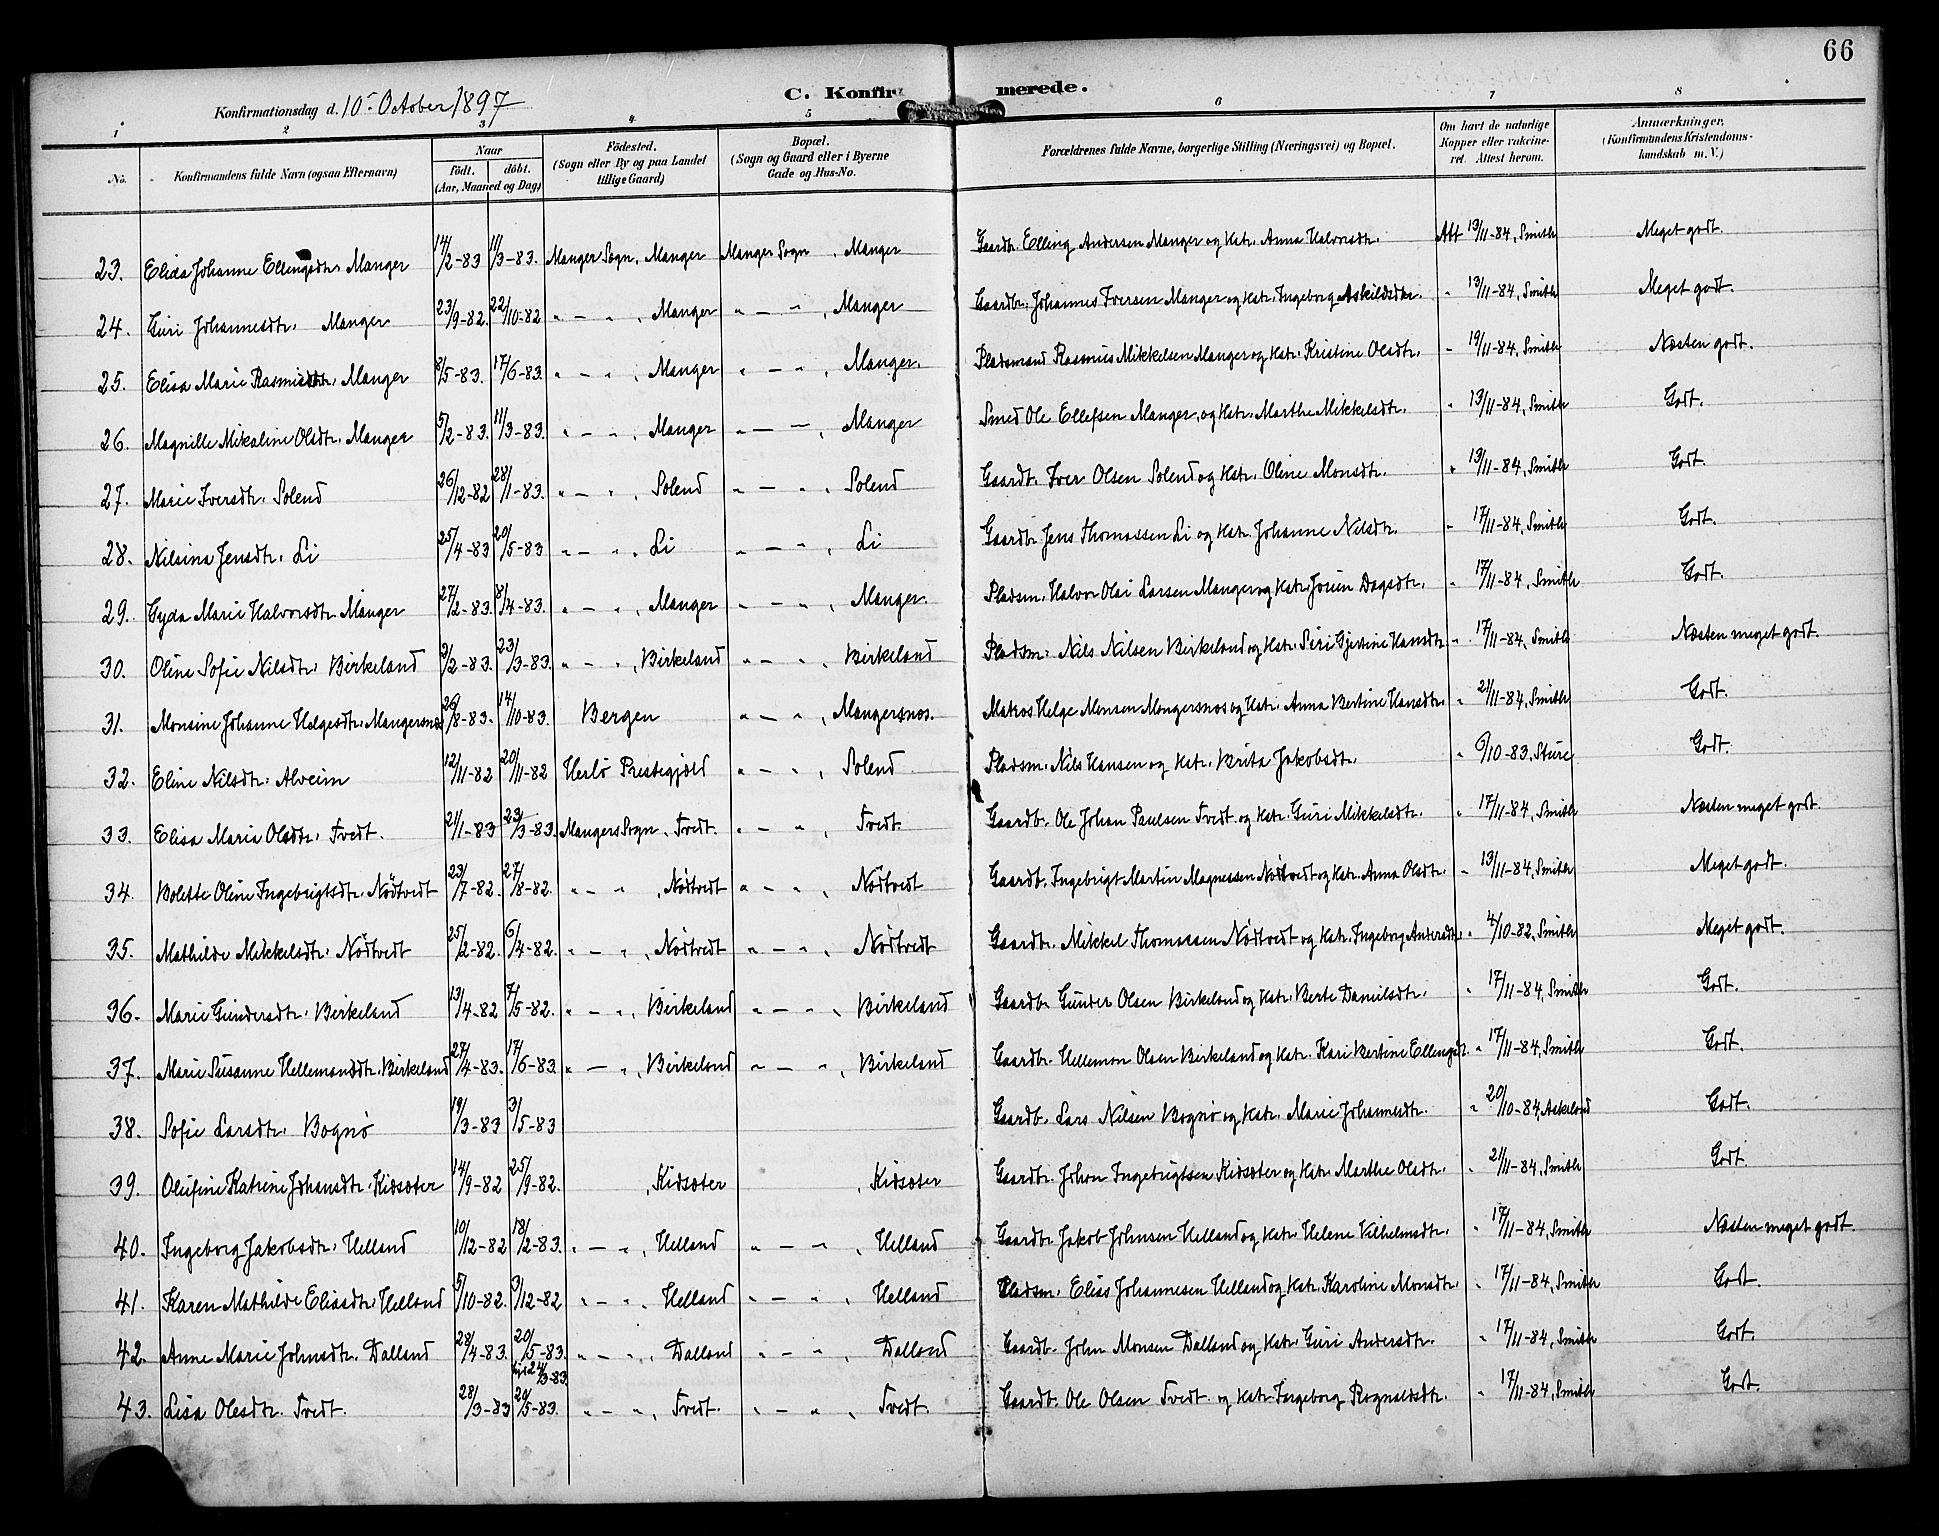 66
Konfirmationsdag d. 10. October 1897
C. Konfirmerede.
1 2 3 4 5 6 7 8
No. Konfirmandens fulde Navn (ogsaa Efternavn) Naar födt. döbt. (Aar, Maaned og Dag) Födested. (Sogn eller By og paa Landet tillige Gaard) Bopæl. (Sogn og Gaard eller i Byerne Gade og Hus-No. Forældrenes fulde Navne, borgerlige Stilling (Næringsvei) og Bopæl. Om havt de naturlige Kopper eller vakcineret. Attest herom. Anmærkninger. (Konfirmandens Kristendomskundskab m. V.)
23. Elisa Johanne Ellingsdtr. Manger 14/2-83 11/3-83. Manger Sogn, Manger Manger Sogn, Manger Gaardbr. Elling Andersen Manger og Kstr. Anna Halvorsdtr. Att 13/11-84, Smith Meget godt.
24. Guri Johannesdtr. Manger 23/9-82. 22/10-82 " — ", Manger " — ", Manger Gaardbr. Johannes Iversen Manger og Kstr. Ingeborg Askildsdtr. " 13/11-84, Smith Meget godt.
25. Elisa Marie Rasmusdtr. Manger 8/5-83. 17/6-83. " — ", Manger " — ", Manger. Pladsmand Rasmus Mikkelsen Manger og Kstr. Kristine Olsdtr. " 19/11-84, Smith Næsten godt.
26. Magnille Mikaline Olsdtr. Manger 5/2-83. 11/3-83. " — ", Manger " — ", Manger Smed Ole Ellefsen Manger, og Kstr. Marthe Mikkelsdtr. " 13/11-84, Smith Godt.
27. Marie Iversdtr. Solend 26/12-82 28/1-83. " — ", Solend " — ", Solend Gaardb. Iver Olsen Solend og Kstr. Oline Monsdtr. " 13/11-84, Smith Godt.
28. Nilsina Jensdtr. Li 25/4-83 20/5-83 " — ", Li " — ", Li Gaardb. Jens Thomassen Li og Kstr. Johanne Nilsdtr. " 17/11-84, Smith Godt.
29. Gyda Marie Halvorsdtr. Manger 27/2-83. 8/4-83. " — ", Manger " — ", Manger. Pladsm. Halvor Olai Larsen Manger og Kstr. Josien Dagsdtr. " 17/11-84, Smith Godt.
30. Oline Sofie Nilsdtr. Birkeland 2/2-83. 23/3-83. " — ", Birkeland " — ", Birkeland Pladsm. Nils Nilsen Birkeland og Kstr. Siri Gjertine Hansdtr. " 17/11-84, Smith Næsten meget godt.
31. Monsine Johanne Helgesdtr. Mangersnes 26/8-83. 14/10-83. Bergen " — ", Mangersnes. Matros Helge Monsen Mangersnes og Kstr. Anna Bertine Hansdtr. " 21/11-84, Smith Godt.
32. Eline Nilsdtr. Alveim 12/11-82 20/11-82 Herlö Prestegjeld " — ", Solend Pladsm. Nils Hansen og Kstr. Brita Jakobsdtr. " 6/10-83, Sture Godt.
33. Elisa Maria Olsdtr. Tvedt. 21/1-83 23/3-83. Mangers Sogn, Tvedt. " — ", Tvedt. Gaardb. Ole Johan Paulsen Tvedt. og Kstr. Guri Mikkelsdtr. " 17/11-84, Smith Næsten meget godt.
34. Bolette Oline Ingebrigtsdtr. Nödtvedt 23/7-82. 27/8-82. " — ", Nödtvedt " — ", Nödtvedt Gaardb. Ingebrigt Martin Magnessen Nödtvedt og Kstr. Anna Olsdtr. " 13/11-84, Smith Meget godt.
35. Mathilde Mikkelsdtr. Nödtvedt 25/2-82. 6/4-82. " — ", Nödtvedt " — ", Nödtvedt Gaardbr. Mikkel Thomassen Nödtvedt og Kstr. Ingeborg Andersdtr. " 4/10-82, Smith Meget godt.
36. Marie Gundersdtr. Birkeland 13/4-82 7/5-82. " — ", Birkeland " — ", Birkeland Gaardb. Gunder Olsen Birkeland og Kstr. Berte Danielsdtr. " 17/11-84, Smith Godt.
37. Marie Susanne Hellemansdtr. Birkeland 27/4-83. 17/6-83. " — ", Birkeland " — ", Birkeland Gaardbr. Helleman Olsen Birkeland og Kstr. Kari Bertine Ellingsdtr. " 17/11-84, Smith Godt.
38. Sofie Larsdtr. Bognö 19/3-83 3/5-83 Gaardb. Lars Nilsen Bognö og Kstr. Marie Johannesdtr. " 20/10-84, Askeland Godt.
39. Olufine Katrine Johansdtr. Kidsæter 14/9-82 25/9-82. , Kidsæter , Kidsæter Gaardbr. Johan Ingebrigtsen Kidsæter og Kstr. Marthe Olsdtr. " 21/11-84, Smith Godt.
40. Ingeborg Jakobsdtr. Helland 10/12-82 18/2-83. " — ", Helland " — ", Helland Gaardbr. Jakob Johnsen Helland og Kstr. Helene Vilhelmsdtr. " 17/11-84, Smith Næsten meget godt.
41. Karen Mathilde Eliasdtr. Helland 5/10-82. 3/12-82 " — ", Helland " — ", Helland Pladsm. Elias Johannesen Helland og Kstr. Karoline Monsdtr. " 17/11-84, Smith Godt.
42. Anne Marie Johnsdtr. Dalland 28/4-83. 20/5-83. " — ", Dalland " — ", Dalland Gaardb. John Monsen Dalland og Kstr. Guri Andersdtr. " 17/11-84, Smith Godt.
43. Lisa Olesdtr. Tvedt. 28/3-83 20/5-83. " — ", Tvedt. " — ", Tvedt. Gaardb. Ole Olsen Tvedt. og Kstr. Ingeborg Rognaldsdtr. " 17/11-84, Smith Godt.